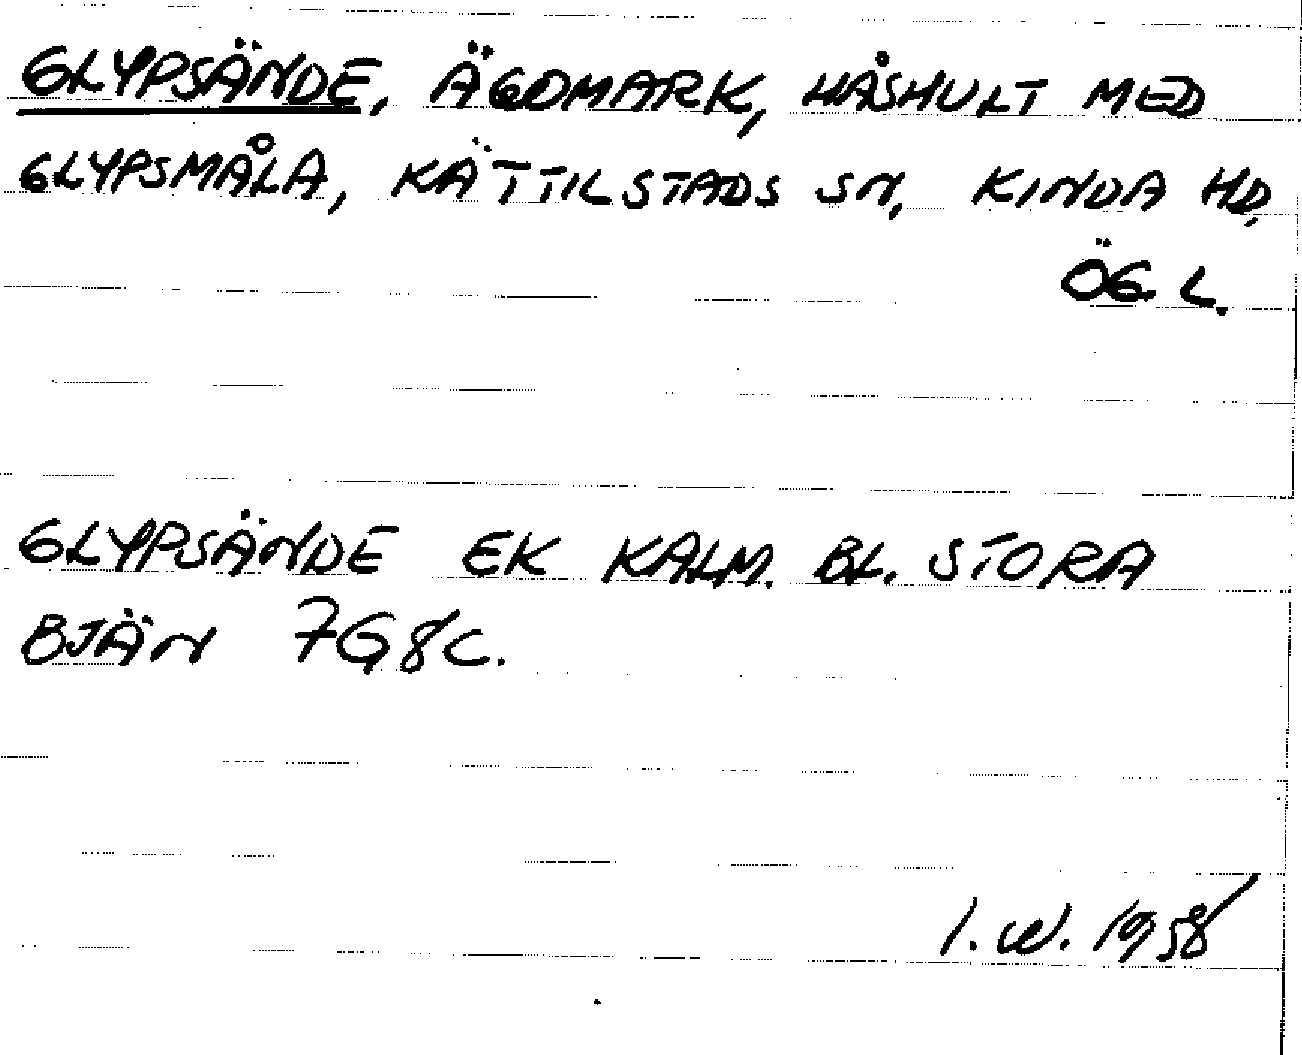 GLYPSÄNDE, ÄGOMARK, HÅSHULT MED
GLYPSMÅLA, KÄTTILSTADS SN, KINDA HD,
ÖG. L.
GLYPSÄNDE EK KALM. BL. STORA
BJÄN 7G8C.
I. W. 1958